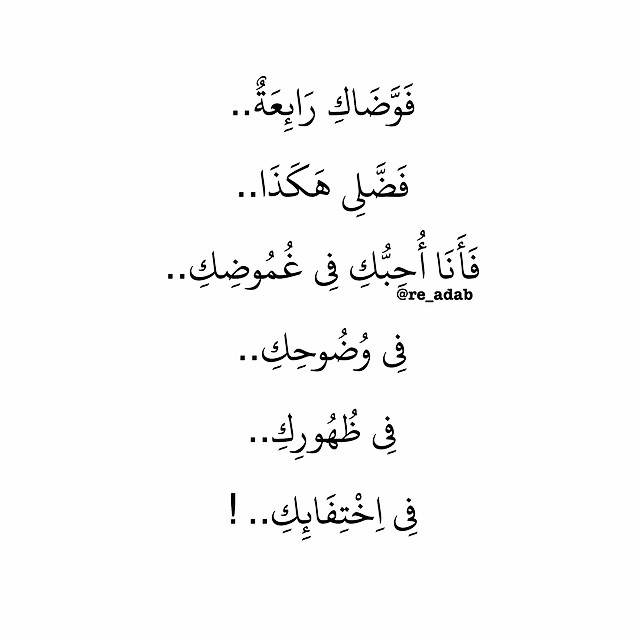 فَوَّضَاكِ رَابِعَةٌ..
فَضَّلِى هَكَذَا..
فَأَنَا أُحِبُّكِ فِى غُمُوضِكِ..
@re_adab
فِى وُضُوحِكِ..
فِى ظُهُورِكِ..
فِى اِخْتِفَائِكِ.. !